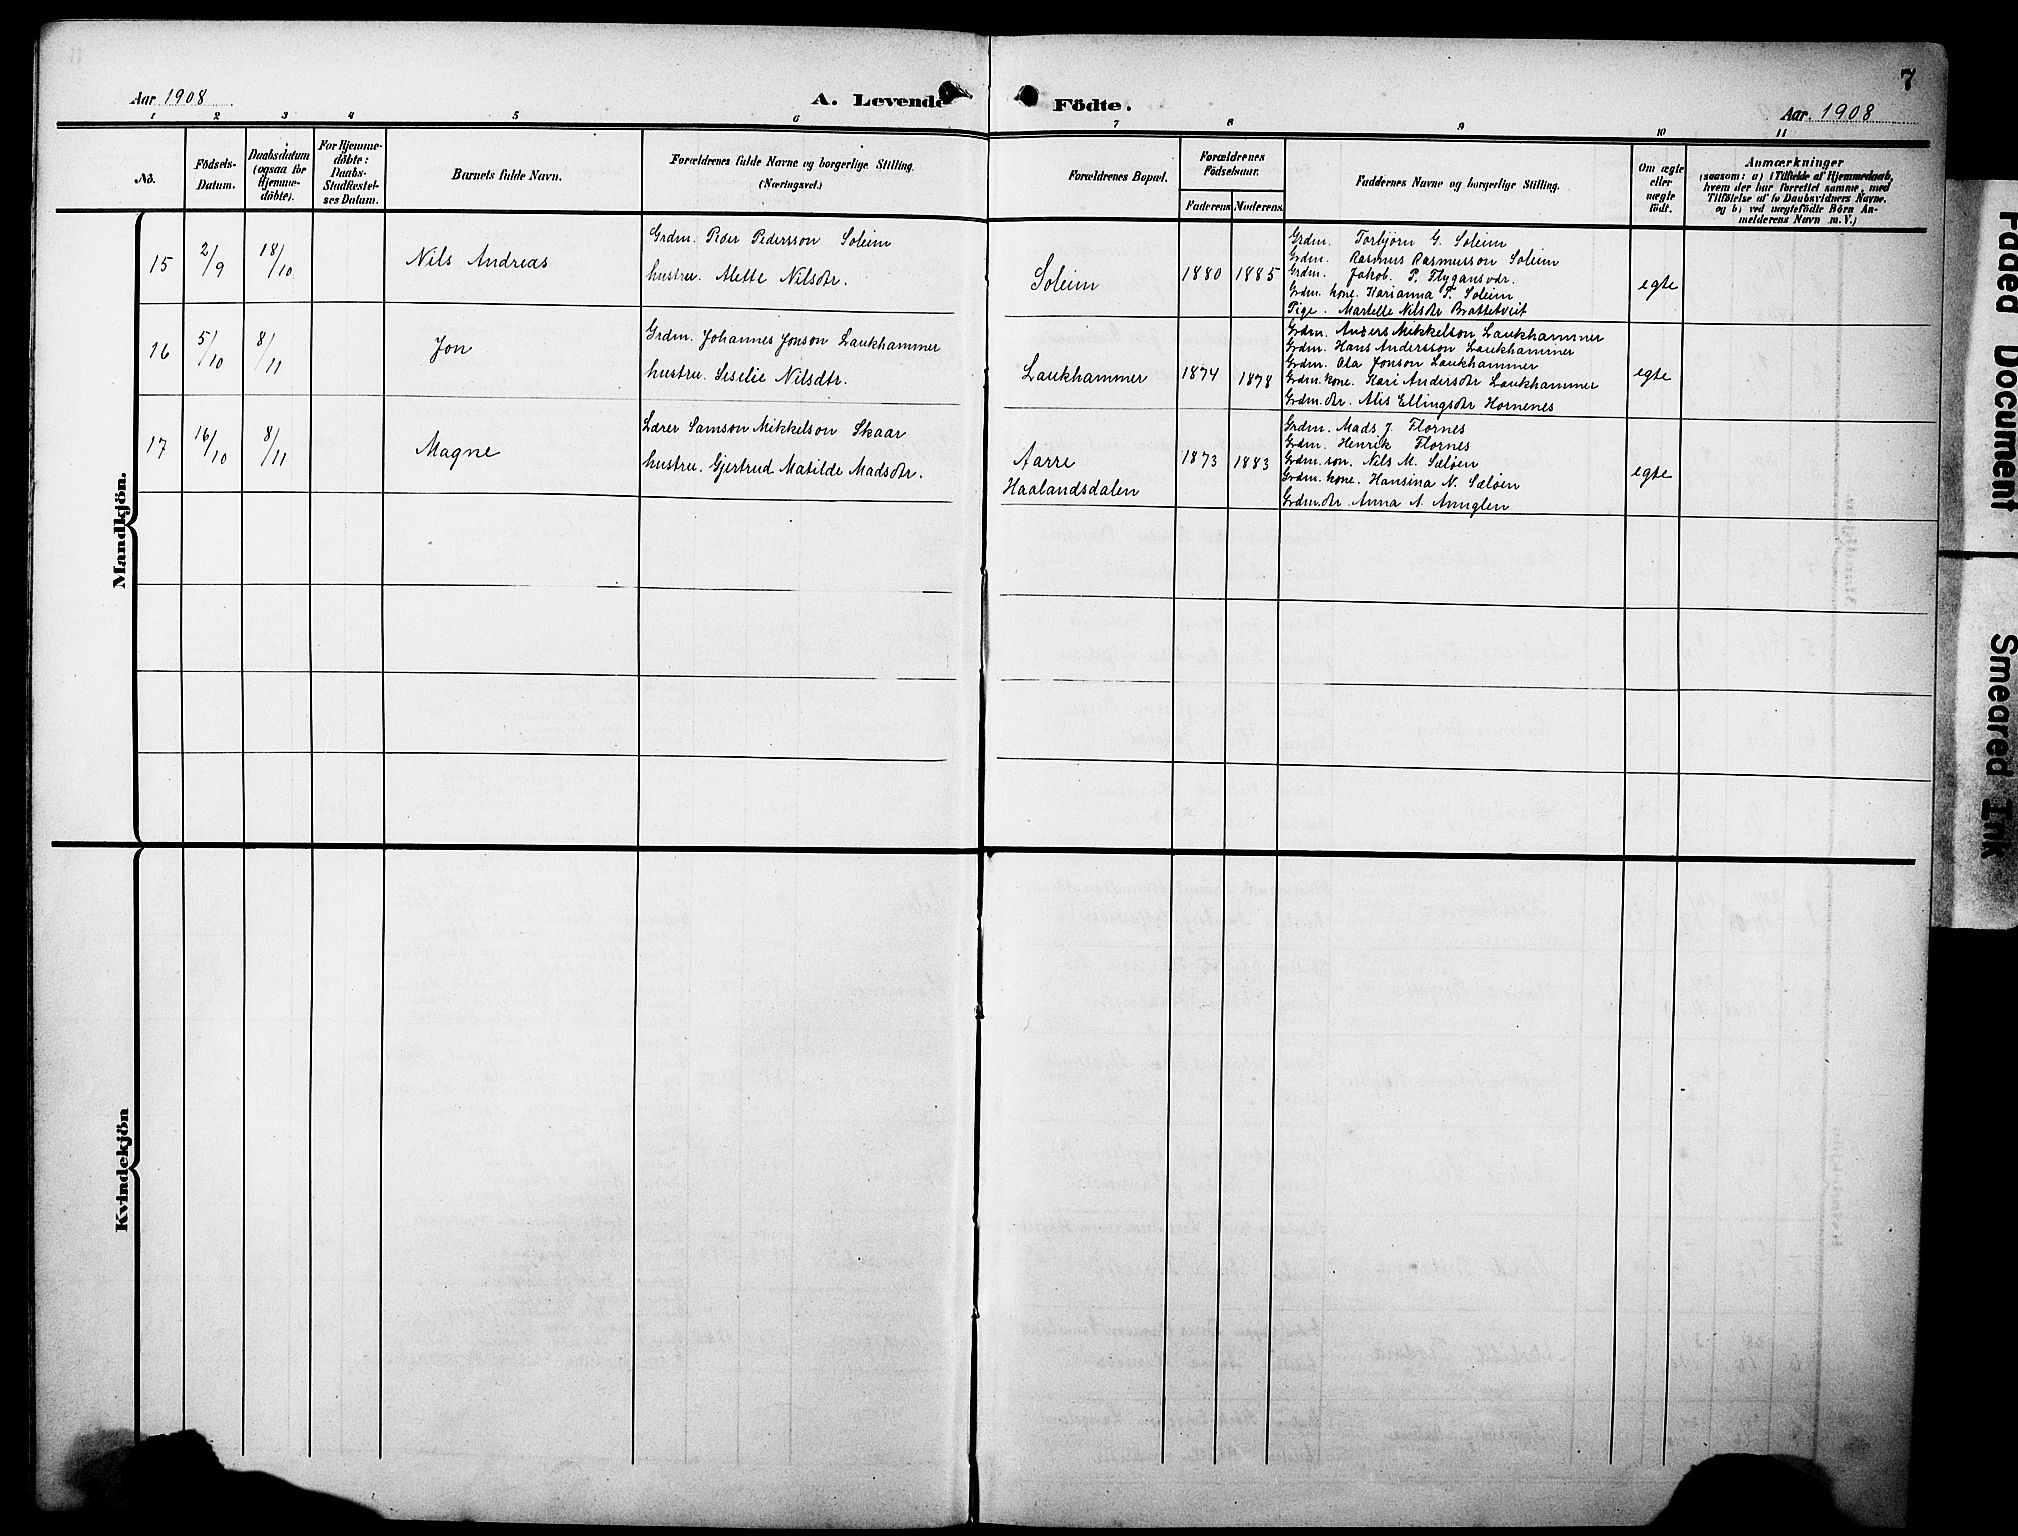 7
Aar 1908
A. Levende Födte.
Aar 1908
1 2 3 4 5 6 7 8 9 10 11
No.
Födsels-
Datum.
Daabsdatum
(ogsaa for
Hjemme-
döbte).
For Hjemme-
döbte:
Daabs-
Stadfæstel-
ses Datum.
Barnets fulde Navn.
Forældrenes fulde Navne og borgerlige Stilling.
(Næringsvei.)
Forældrenes Bopæl.
Forældrenes
Födselsaar.
Faderens
Moderens
Faddernes Navne og borgerlige Stilling.
Om ægte
eller
uægte
födt.
Anmærkninger
(saasom: a) i Tilfælde af Hjemmedaab,
hvem der har forrettet samme, med
Tilföielse af to Daabsvidners Navne.
og b) ved uægtefödte Börn An-
melderens Navn m. V.)
Mandkjön.
15
2/9
18/10
Nils Andreas
Grdm. Peder Pedersson Soleim
hustru. Mette Nilsdtr.
Soleim
1880
1885
Grdm. Torbjörn G. Soleim
Grdm. Rasmus Rasmusson Soleim
Grdm. Jakob P. Flygansvær.
Grdm. kone. Karianna T. Soleim
Pige. Martelle Nilsdtr Brattetveit
egte
16
5/10
8/11
Jon
Grdm. Johannes Jonson Laukhammer
hustru. Siselie Nilsdtr.
Laukhammer
1874
1878
Grdm. Anders Mikkelson Laukhammer
Grdm. Hans Andersson Laukhammer
Grdm. Ola Jonson Laukhammer
Grdm. kone. Kari Andersdtr Laukhammer
Grdm. dtr. Alis Ellingsdtr Hornenes
egte
17
16/10
8/11
Magne
Lærer Samson Mikkelson Skaar
hustru. Gjertrud Matilde Madsdtr.
Aarre
Haalandsdalen
1873
1883
Grdm. Mads J. Flornes
Grdm. Henrik Flornes
Grdm. son. Nils M. Sæløen
Grdm. kone. Hansina N. Sæløen
Grdm. dtr. Anna A.
egte
Kvindekjön
Faded Document
Smeared Ink